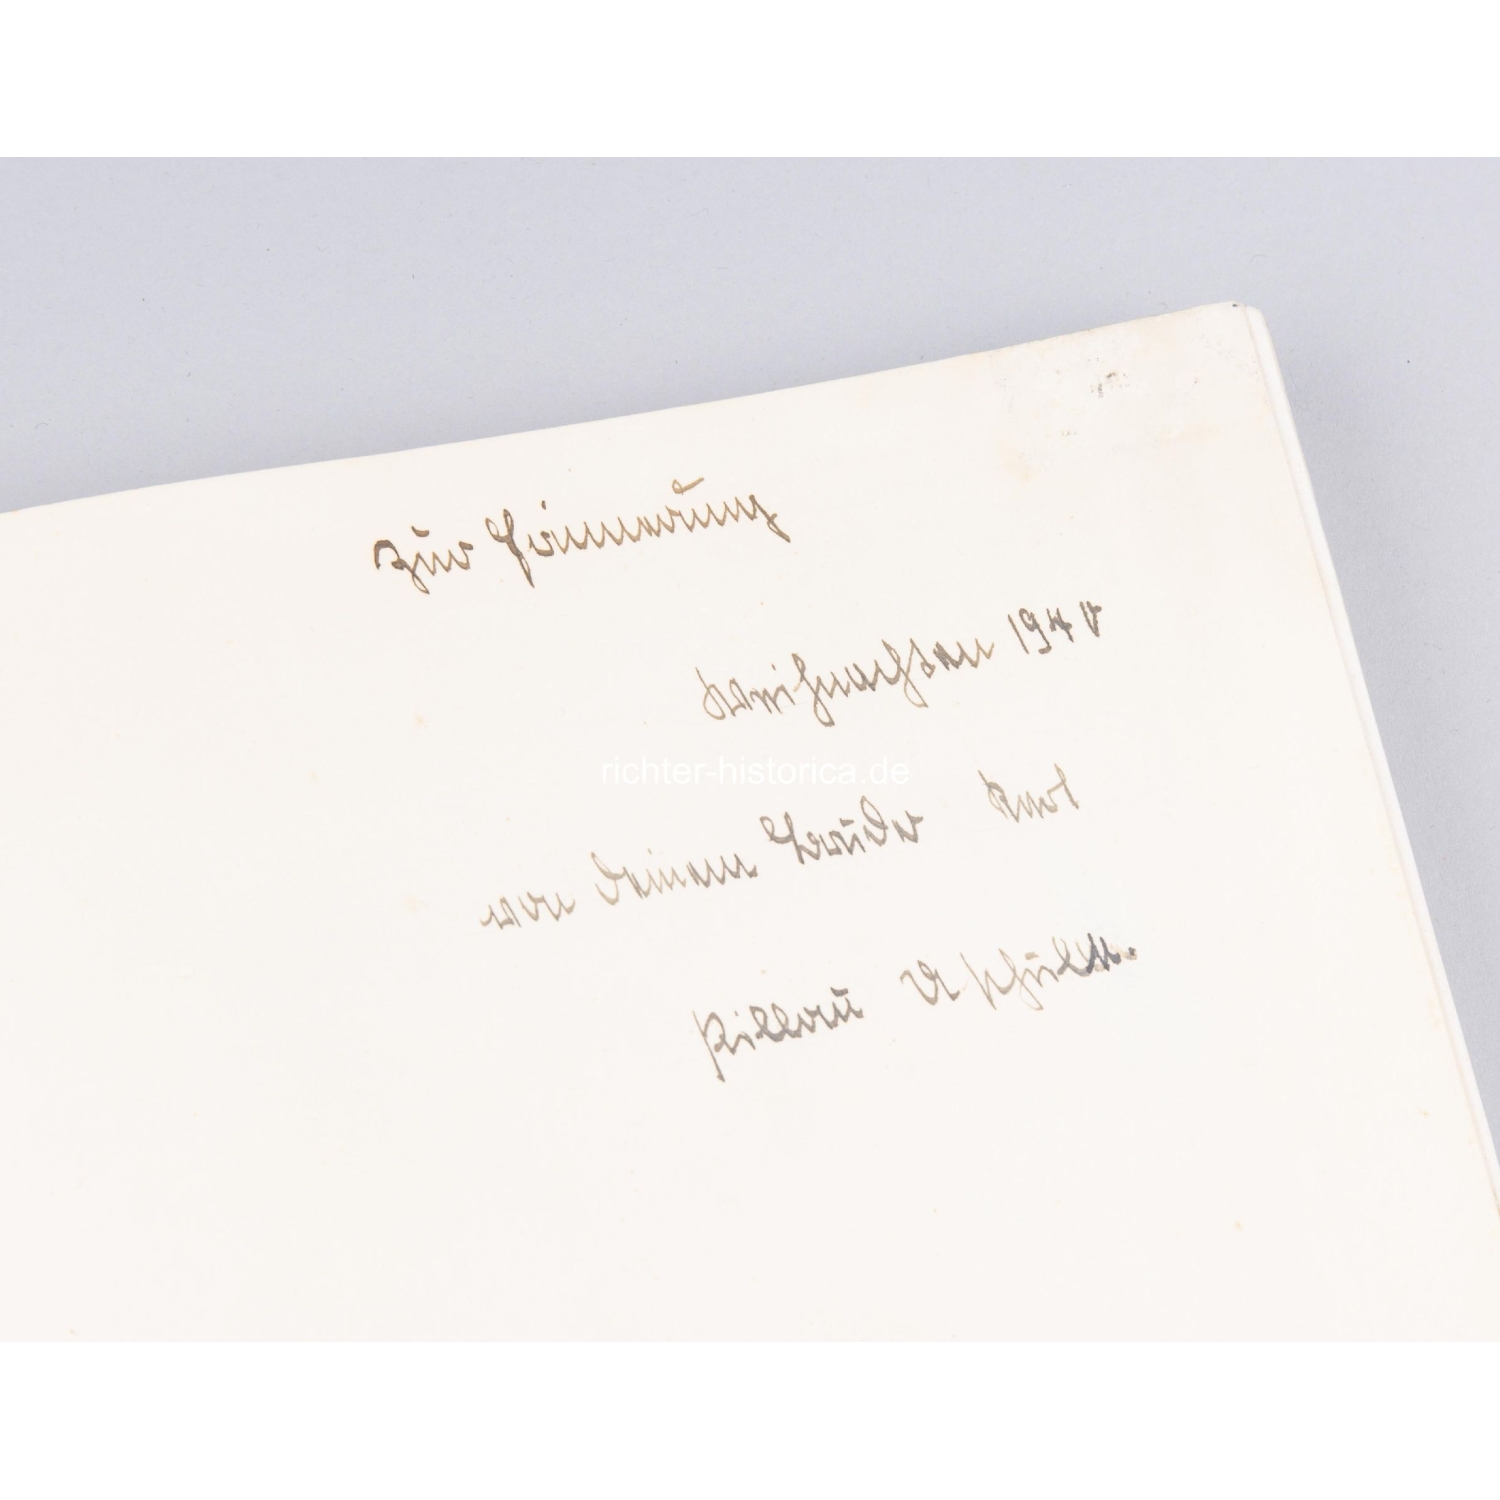 Zur Erinnerung
Weihnachten 1940
richter-historica.de
von Deinem Bruder Karl
Pillau U Schule.